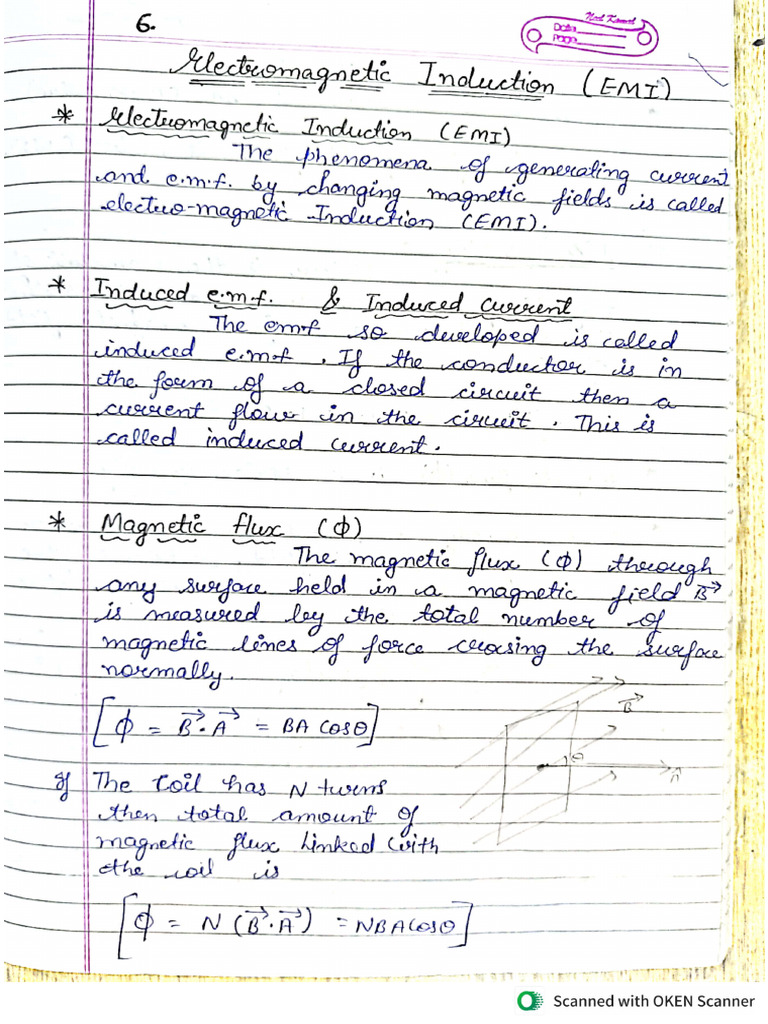 6.
Ned Kamal
Date
Page
Electromagnetic Induction (EMI)
* Electromagnetic Induction (EMI)
The phenomena of generating current
and e.m.f. by changing magnetic fields is called
electro-magnetic Induction (EMI).
* Induced e.m.f. & Induced current
The emf so developed is called
induced e.m.f. If the conductor is in
the form of a closed circuit then a
current flow in the circuit. This is
called induced current.
* Magnetic flux (ϕ)
The magnetic flux (ϕ) through
any surface held in a magnetic field B⃗
is measured by the total number of
magnetic lines of force crossing the surface
normally.
[ϕ = B⃗·A⃗ = BA cosθ]
B⃗
θ
If The coil has N turns
then total amount of
magnetic flux linked with
the coil is
[ϕ = N (B⃗·A⃗) = NBA cosθ]
Scanned with OKEN Scanner